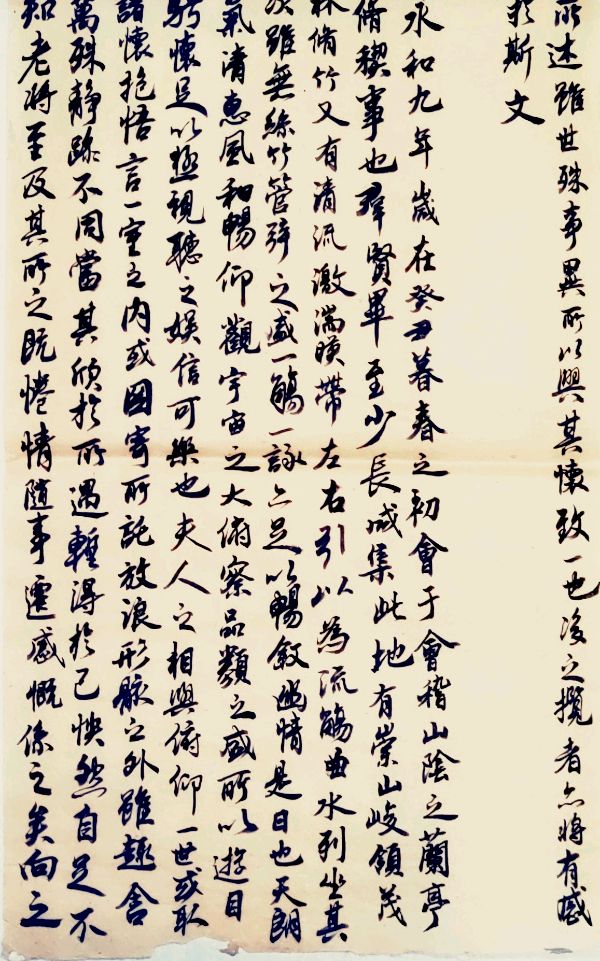 所述雖世殊事異所以興其懷致一也後之攬者亦將有感
於斯文
永和九年歲在癸丑暮春之初會于會稽山陰之蘭亭
脩禊事也群賢畢至少長咸集此地有崇山峻領茂
林脩竹又有清流激湍暎帶左右引以為流觴曲水列坐其
次雖無絲竹管弦之盛一觴一詠亦足以暢敘幽情是日也天朗
氣清惠風和暢仰觀宇宙之大俯察品類之盛所以遊目
騁懷足以極視聽之娛信可樂也夫人之相與俯仰一世或取
諸懷抱悟言一室之內或因寄所託放浪形骸之外雖趣舍
萬殊靜躁不同當其欣於所遇暫得於己怏然自足不
知老將至及其所之既惓情隨事遷感慨係之矣向之